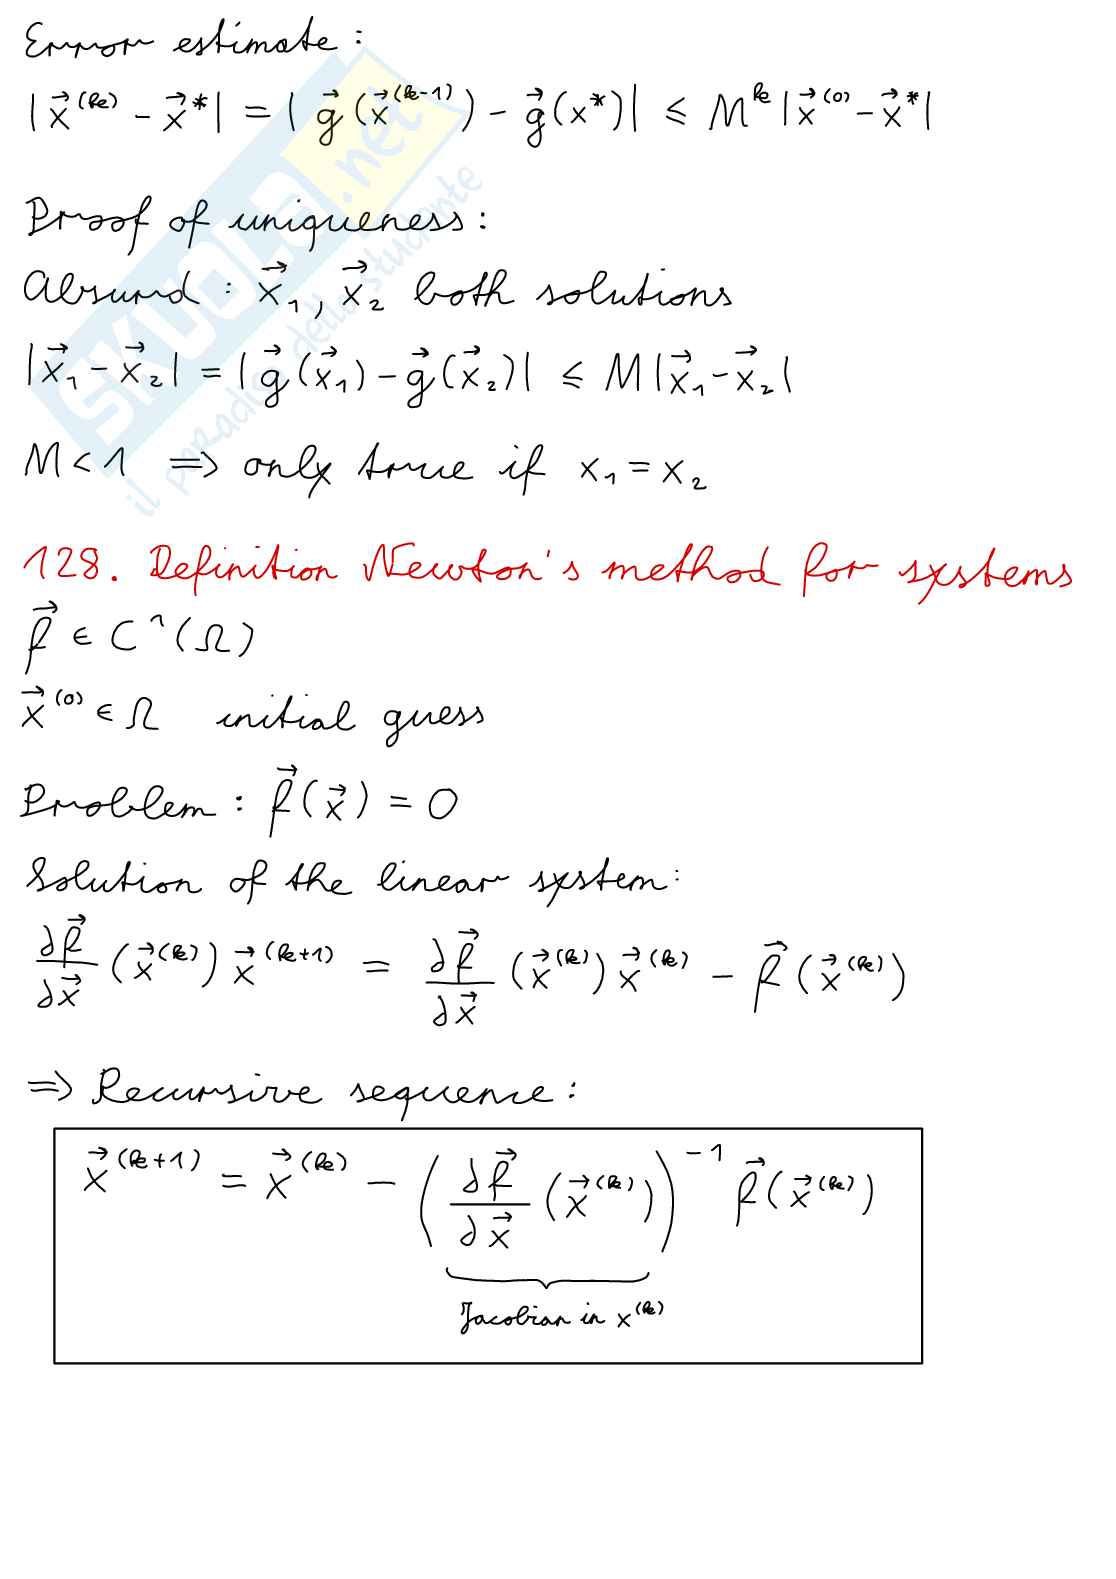 Error estimate:
|x⃗^(k) − x⃗*| = |g⃗(x⃗^(k-1)) − g⃗(x*)| ≤ M^k |x⃗^(0) − x⃗*|
Proof of uniqueness:
Absurd: x⃗₁, x⃗₂ both solutions
|x⃗₁ − x⃗₂| = |g⃗(x⃗₁) − g⃗(x⃗₂)| ≤ M|x⃗₁ − x⃗₂|
M < 1 ⇒ only true if x₁ = x₂
128. Definition Newton's method for systems
f⃗ ∈ C¹(Ω)
x⃗^(0) ∈ Ω initial guess
Problem: f⃗(x⃗) = 0
Solution of the linear system:
∂f⃗/∂x⃗ (x⃗^(k)) x⃗^(k+1) = ∂f⃗/∂x⃗ (x⃗^(k)) x⃗^(k) − f⃗(x⃗^(k))
⇒ Recursive sequence:
x⃗^(k+1) = x⃗^(k) − (∂f⃗/∂x⃗ (x⃗^(k)))^−1 f⃗(x⃗^(k))
Jacobian in x^(k)
SKUOLA.net
il paradiso dello studente